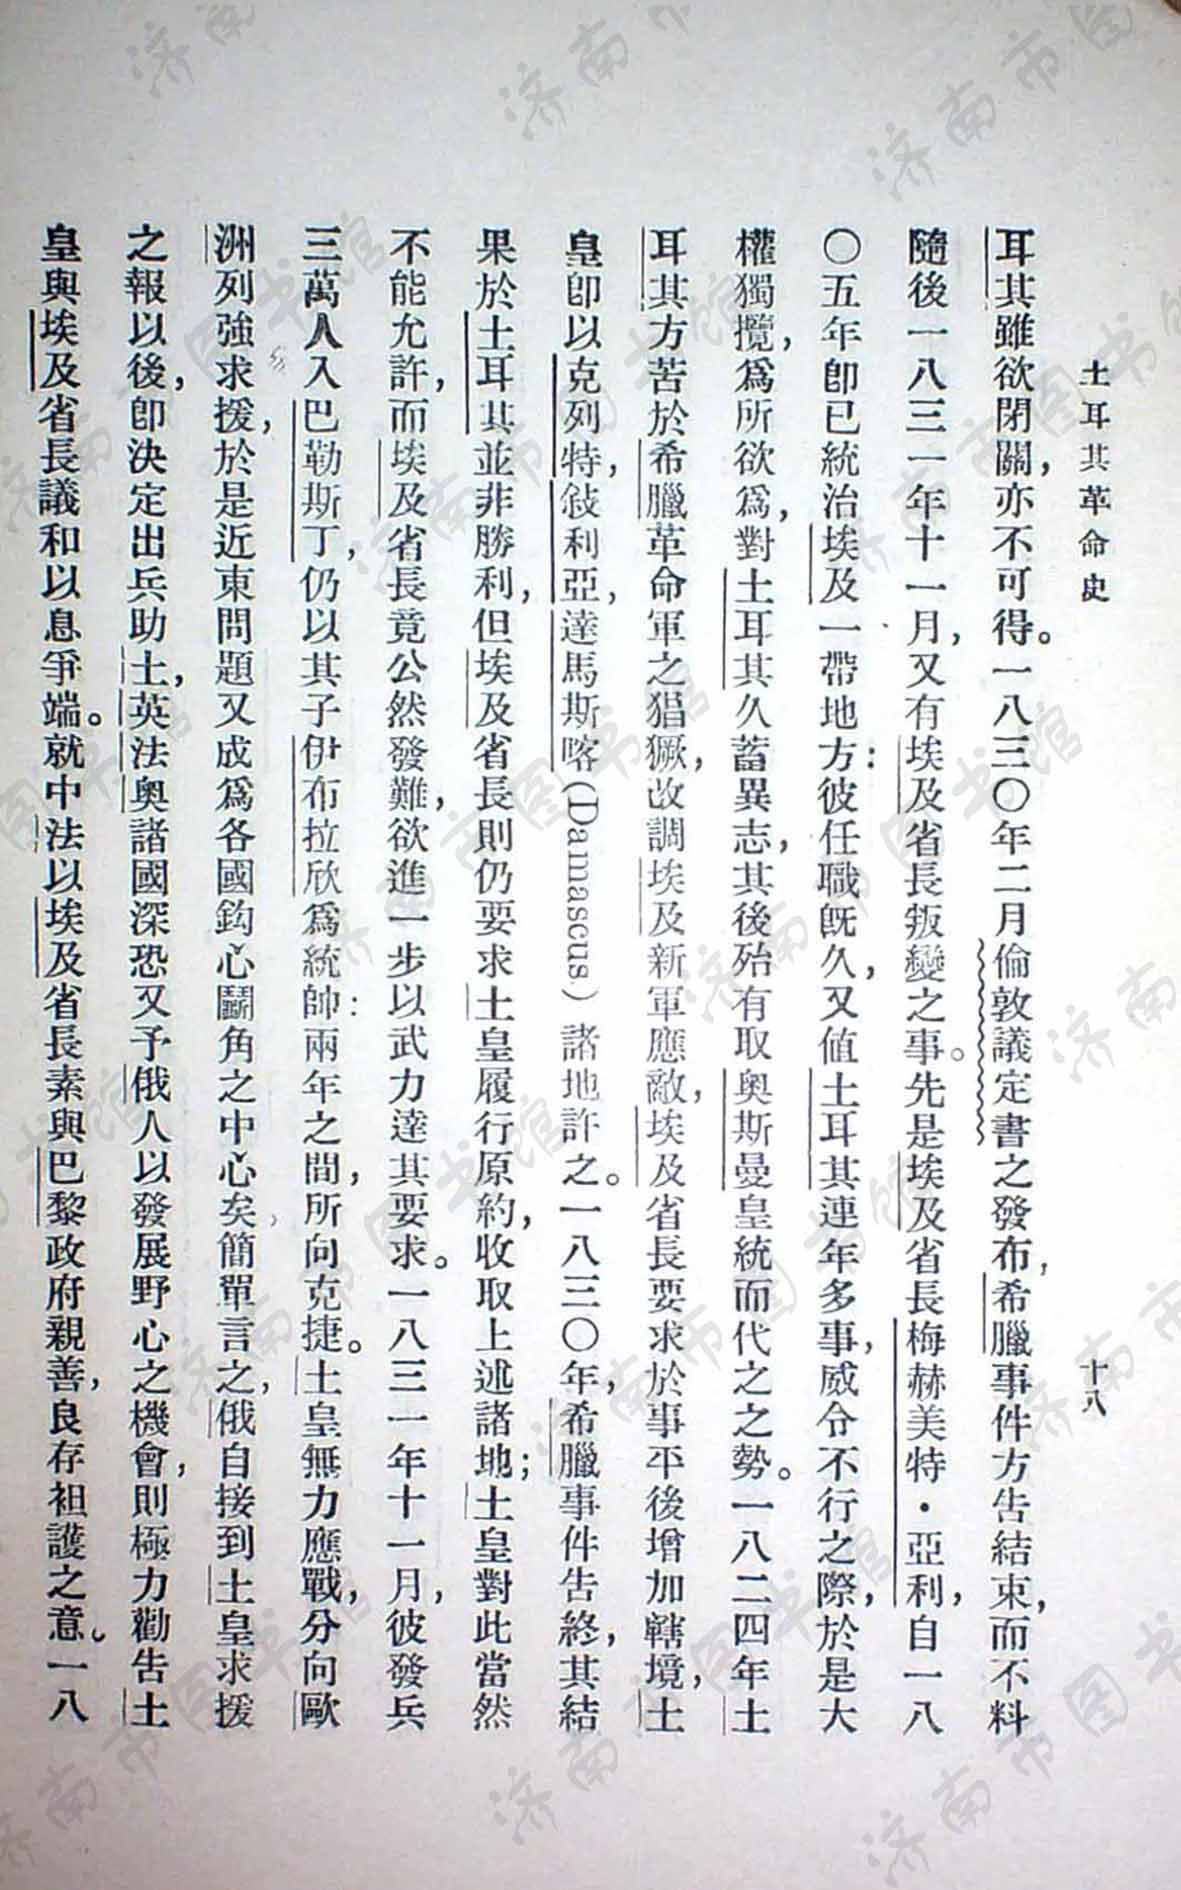 土耳其革命史
十八
耳其雖欲閉關，亦不可得。一八三〇年二月倫敦議定書之發布，希臘事件方告結束，而不料
隨後一八三一年十一月，又有埃及省長叛變之事。先是埃及省長梅赫美特·亞利，自一八
〇五年卽已統治埃及一帶地方：彼任職旣久，又値土耳其連年多事，威令不行之際，於是大
權獨攬，爲所欲爲，對土耳其久蓄異志，其後殆有取奧斯曼皇統而代之之勢。一八二四年土
耳其方苦於希臘革命軍之猖獗，改調埃及新軍應敵，埃及省長要求於事平後增加轄境，土
皇卽以克列特，敍利亞，達馬斯喀（Damascus）諸地許之。一八三〇年，希臘事件告終，其結
果於土耳其並非勝利，但埃及省長則仍要求土皇履行原約，收取上述諸地；土皇對此當然
不能允許，而埃及省長竟公然發難，欲進一步以武力達其要求。一八三一年十一月，彼發兵
三萬人入巴勒斯丁，仍以其子伊布拉欣爲統帥：兩年之間，所向克捷。土皇無力應戰，分向歐
洲列強求援，於是近東問題又成爲各國鈎心鬭角之中心矣，簡單言之，俄自接到土皇求援
之報以後，卽決定出兵助土，英法奧諸國深恐又予俄人以發展野心之機會，則極力勸告土
皇與埃及省長議和以息爭端。就中法以埃及省長素與巴黎政府親善，良存袒護之意。一八
濟南市图书馆